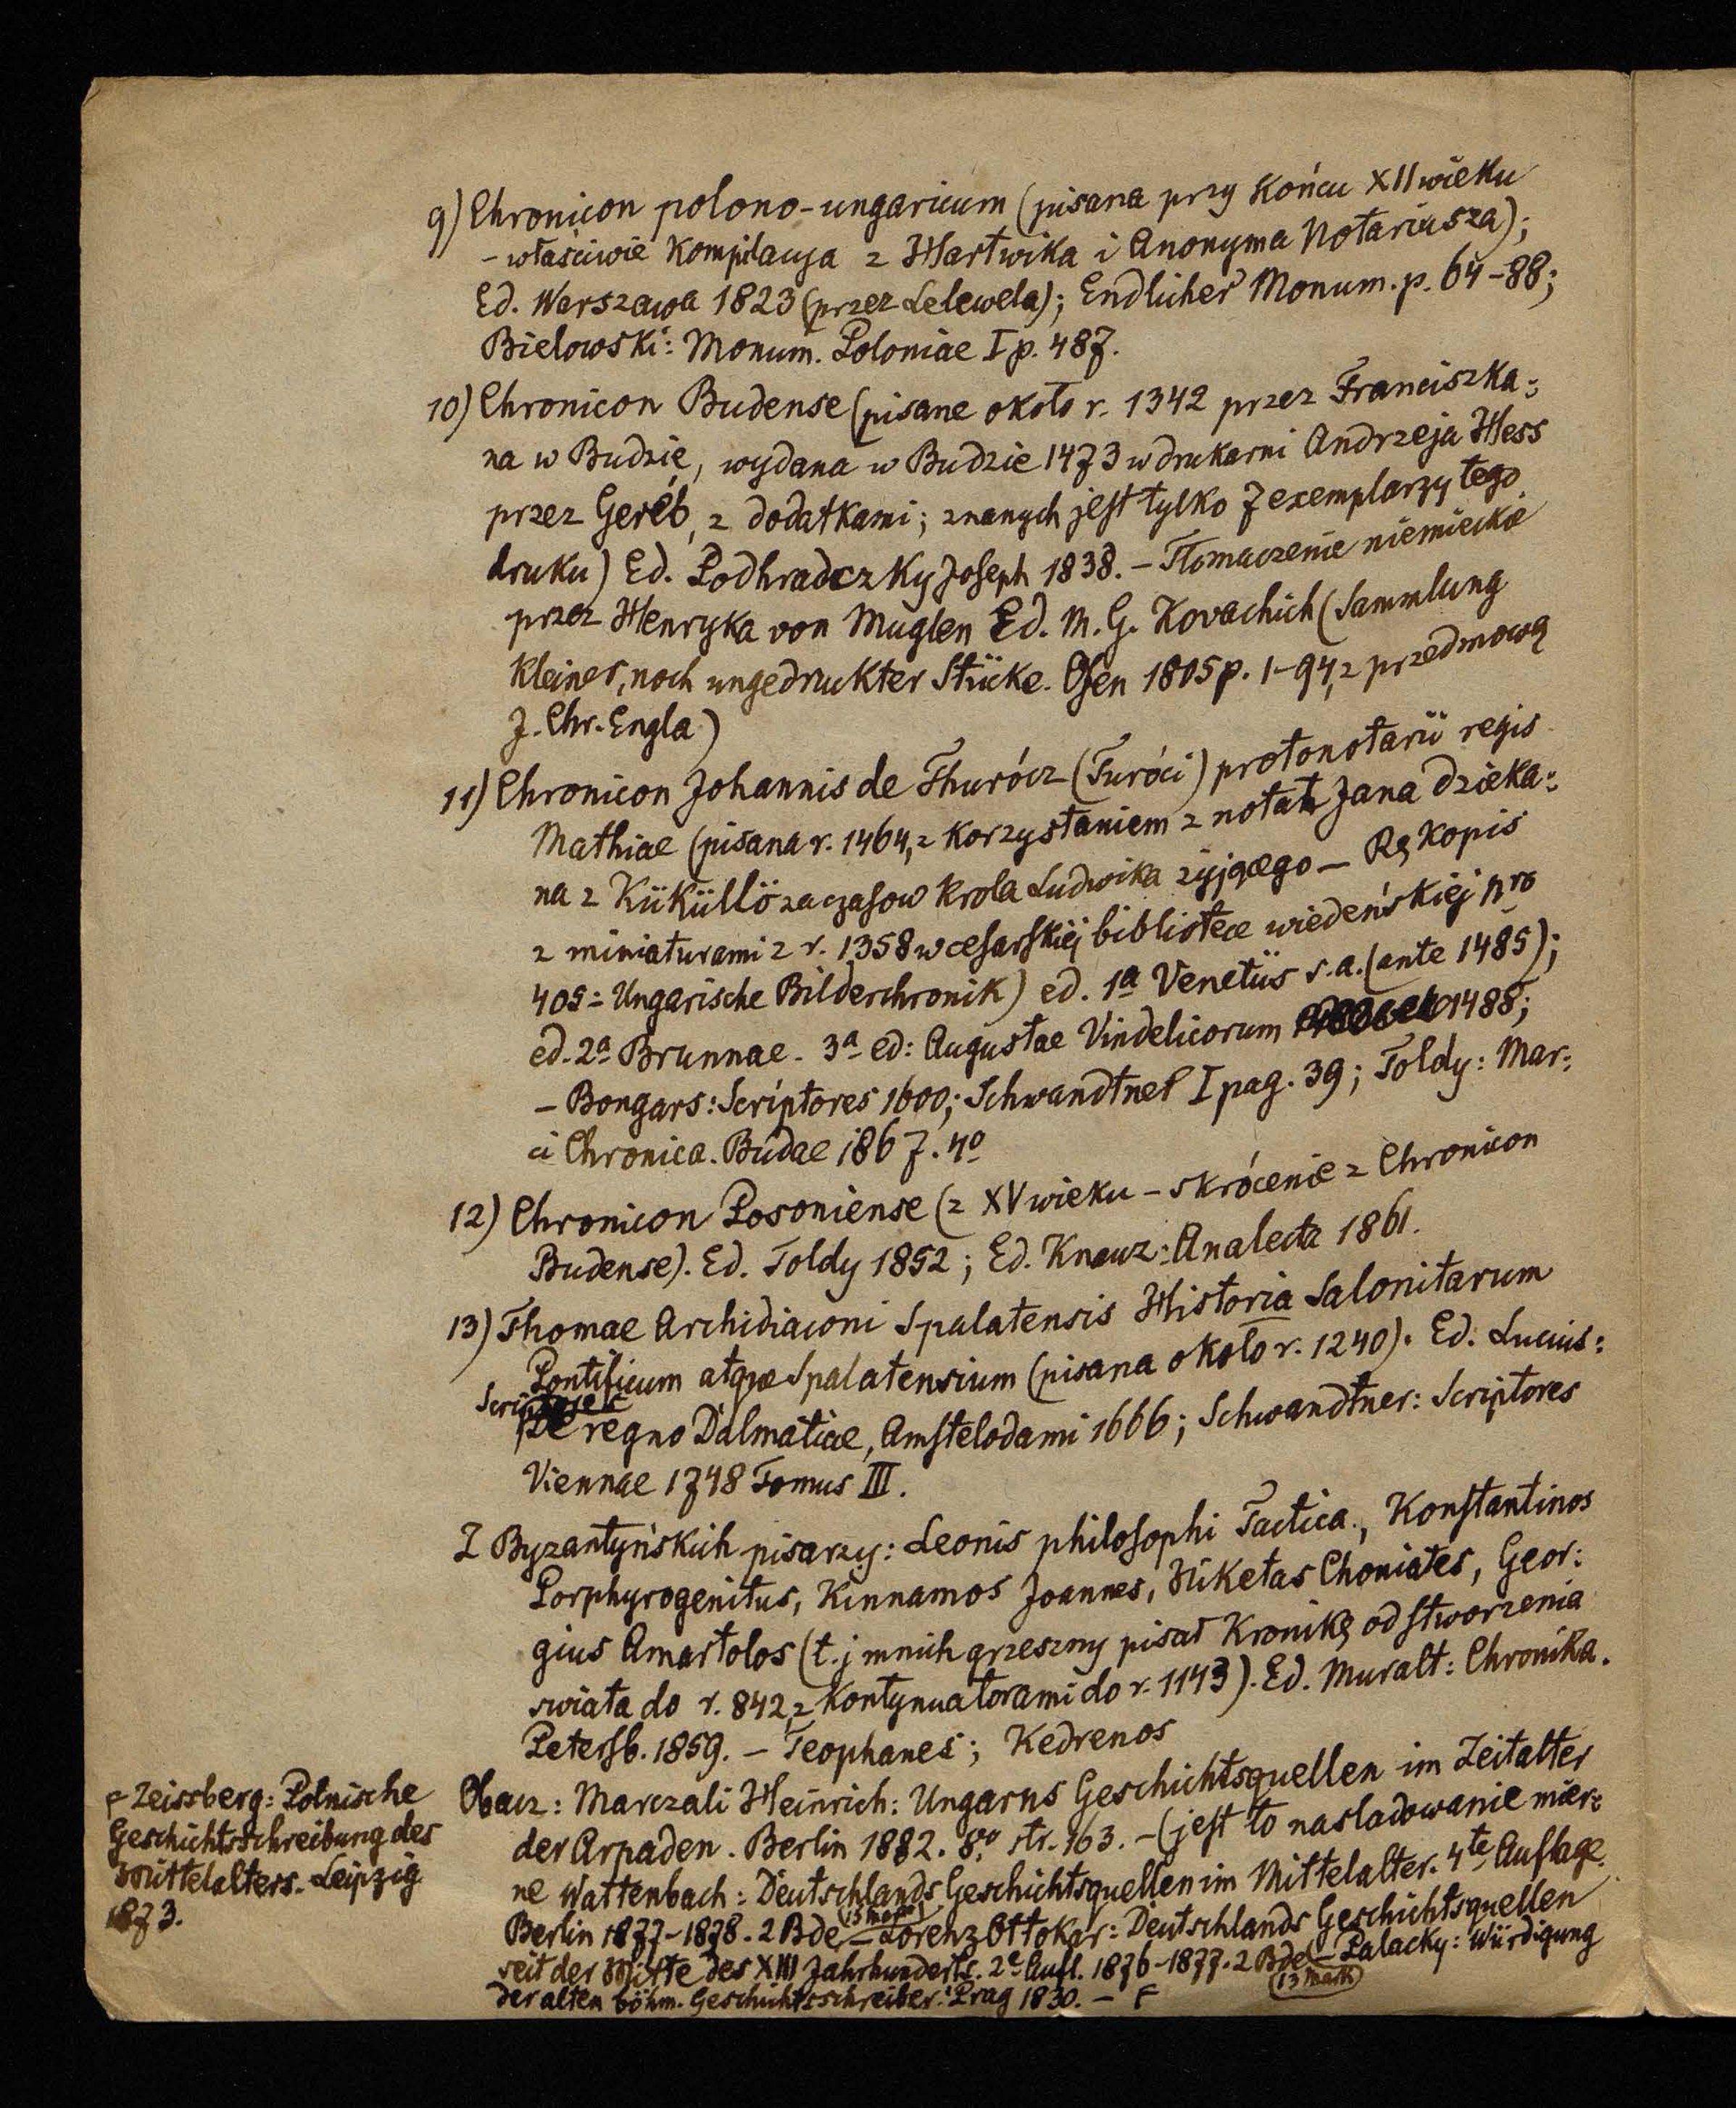 9) Chronicon polono-ungaricum (pisana przy końcu XII wieku
- właściwie kompilacyja z Hartwika i Anonyma Notariusza);
Ed. Warszawa 1823 (przez Lelewela); Endlicher Monum. p. 64-88;
Bielowski: Monum. Poloniae I p. 487.
10) Chronicon Budense (pisane około r. 1342 przez Franciszka=
na w Budzie, wydana w Budzie 1473 w drukarni Andrzeja Hess
przez Geréb, z dodatkami; znanych jest tylko 7 exemplarzy tego
druku) Ed. Podhradczky Joseph 1838. - Tłomaczenie niemieckie
przez Henryka von Muglen Ed. M. G. Kovachich (Sammlung
kleiner, noch ungedrukter Stücke. Ofen 1805 p. 1-94, z przedmową
J. Chr. Engla)
11) Chronicon Johannis de Thurócz (Turóci) protonotarii regis
Mathiae (pisana r. 1464, z korzystaniem z notat Jana dzieka=
na z Küküllö za czasow krola Ludwika żyjącego - Rękopis
z miniaturami z r. 1358 w cesarskiej bibliotece wiedeńskiej nro
405 = Ungarische Bilderchronik) ed. 1a Venetiis s.a. (ante 1485);
ed. 2a Brunnae - 3a ed: Augustae Vindelicorum 1488;
- Bongars: Scriptores 1600; Schwandtner I pag. 39; Toldy: Mar=
ci Chronica. Budae 1867. 4o
12) Chronicon Posoniense (z XV wieku - skrócenie z Chronicon
Budense). Ed. Toldy 1852; Ed. Knauz: Analecta 1861.
13) Thomae Archidiaconi Spalatensis Historia Salonitarum
Pontificum atque Spalatensium (pisana około r. 1240). Ed. Lucius:
Scriptores
De regno Dalmatiae, Amstelodami 1666; Schwandtner: Scriptores
Viennae 1748 Tomus III.
Z Byzantyńskich pisarzy: Leonis philosophi Tactica, Konstantinos
Porphyrogenitus, Kinnamos Joannes, Niketas Choniates, Geor=
gius Amartolos (t.j mnich grzeszny pisał Kronikę od stworzenia
swiata do r. 842, z kontynuatorami do r. 1143). Ed. Muralt: Chronika.
Petersb. 1859. - Teophanes; Kedrenos
Obacz: Marczali Heinrich: Ungarns Geschichtsquellen im Zeitalter
der Arpaden. Berlin 1882. 8vo str. 163. - (jest to nasladowanie mier=
ne Wattenbach: Deutschlands Geschichtsquellen im Mittelalter. 4te Auflage.
Berlin 1877-1878. 2 Bde (13 mark) - Lorenz Ottokar: Deutschlands Geschichtsquellen
seit der Mitte des XIII Jahrhunderts. 2e Aufl. 1876-1877. 2 Bde (13 mark) - Palacky: Würdigung
der alten böhm. Geschichtsschreiber. Prag 1830. - F
F Zeissberg: Polnische
Geschichtsschreibung des
Mittelalters. Leipzig
1873.